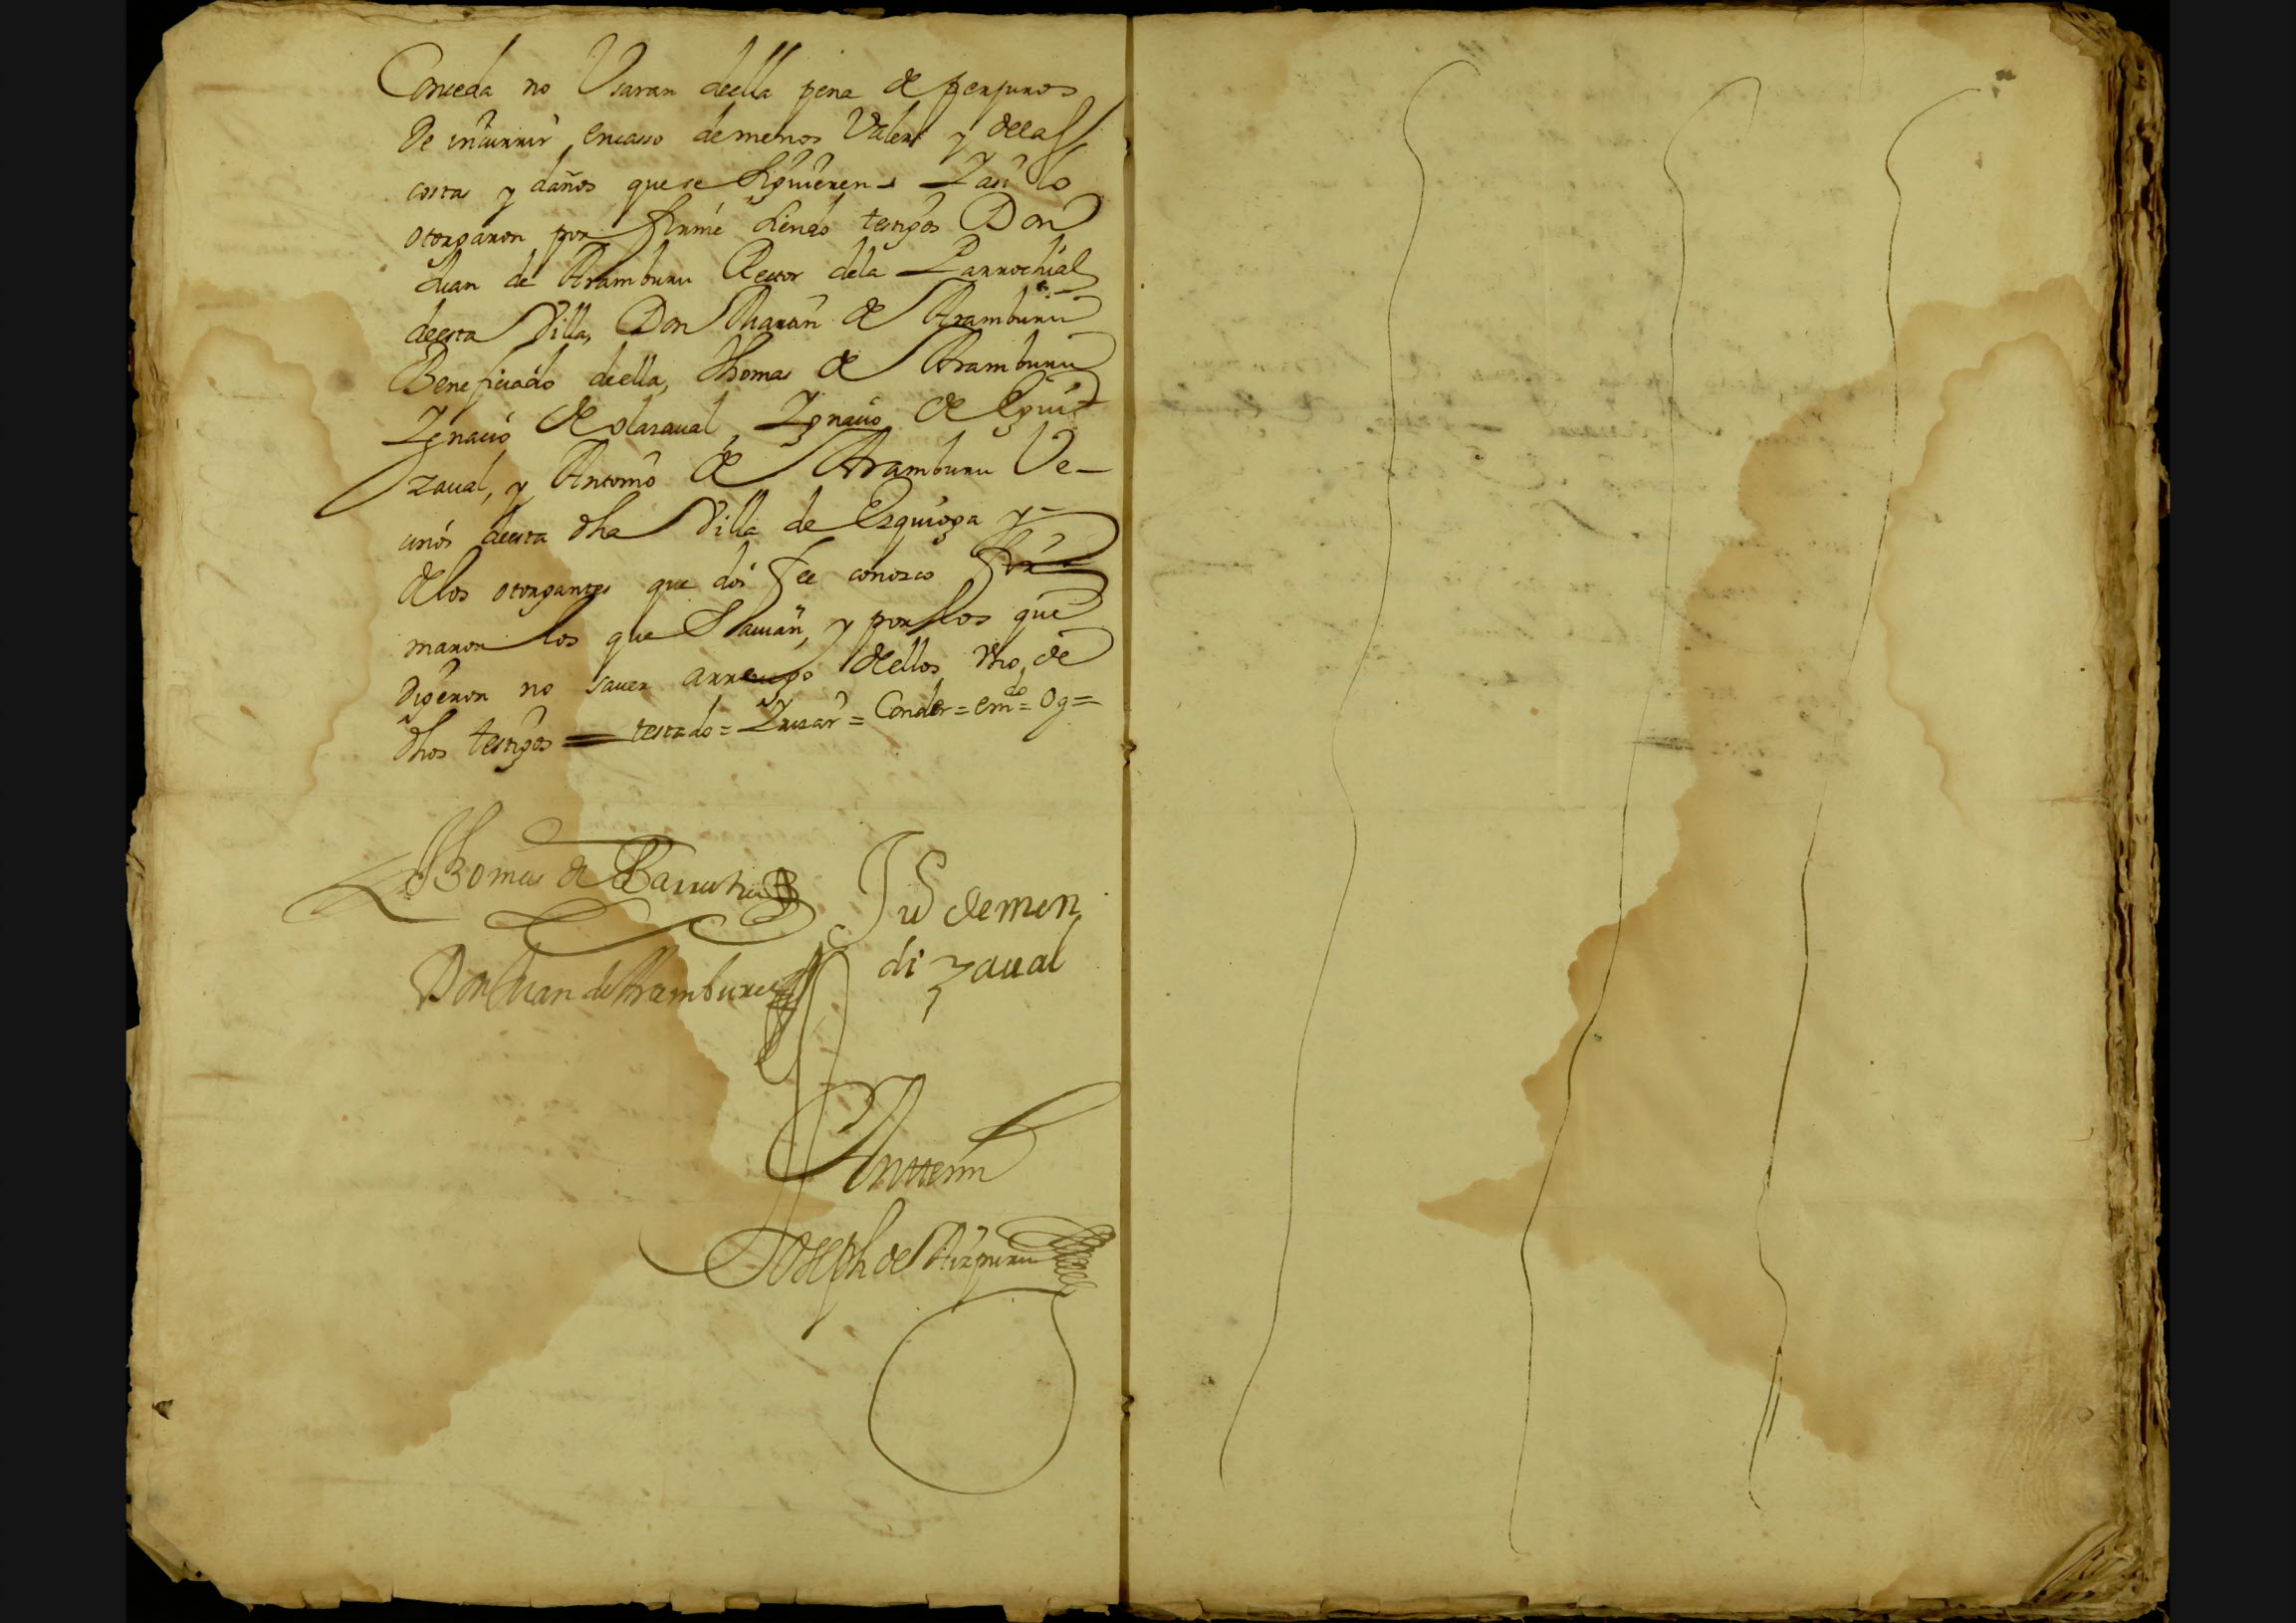 Conceda no Usaran deella pena de perjuros
De incurrir, encasso demenos Valer y delas
costas y daños quese siguieren – Y asi lo
otorgaron por firme siendo testigos Don
Juan de Aramburu Rector dela Parrochial
deesta Villa, Don Martin de Aramburu
Beneficiado deella, Thomas de Aramburu
Ygnacio de olazaval, Ygnacio de Egui-
zaval, y Antonio de Aramburu Ve-
cinos deesta dha Villa de Ezquioga y-
delos otorgantes que doi fee conosco fir-
maron los que Savian, y por los que
Digeron no saver arruego dellos Vno, de
dhos testigos = testado = = Conder = em.do = Og =
Thomas de Barrutia
Ju de men
di zaual
Don Juan de Aramburu
Antemi
Joseph de Aizpuru